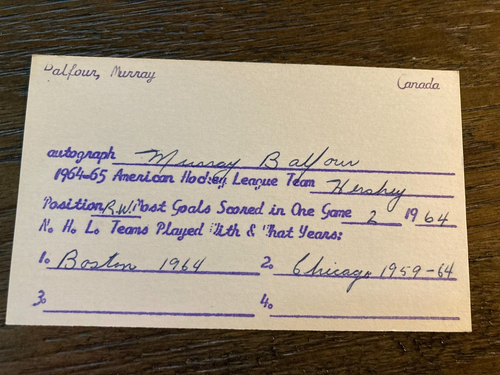 Balfour, Murray Canada
autograph Murray Balfour
1964-65 American Hockey League Team Hershey
Position R.W. Most Goals Scored in One Game 2 1964
N. H. L. Teams Played With & What Years:
1. Boston 1964 2. Chicago 1959-64
3. 4.